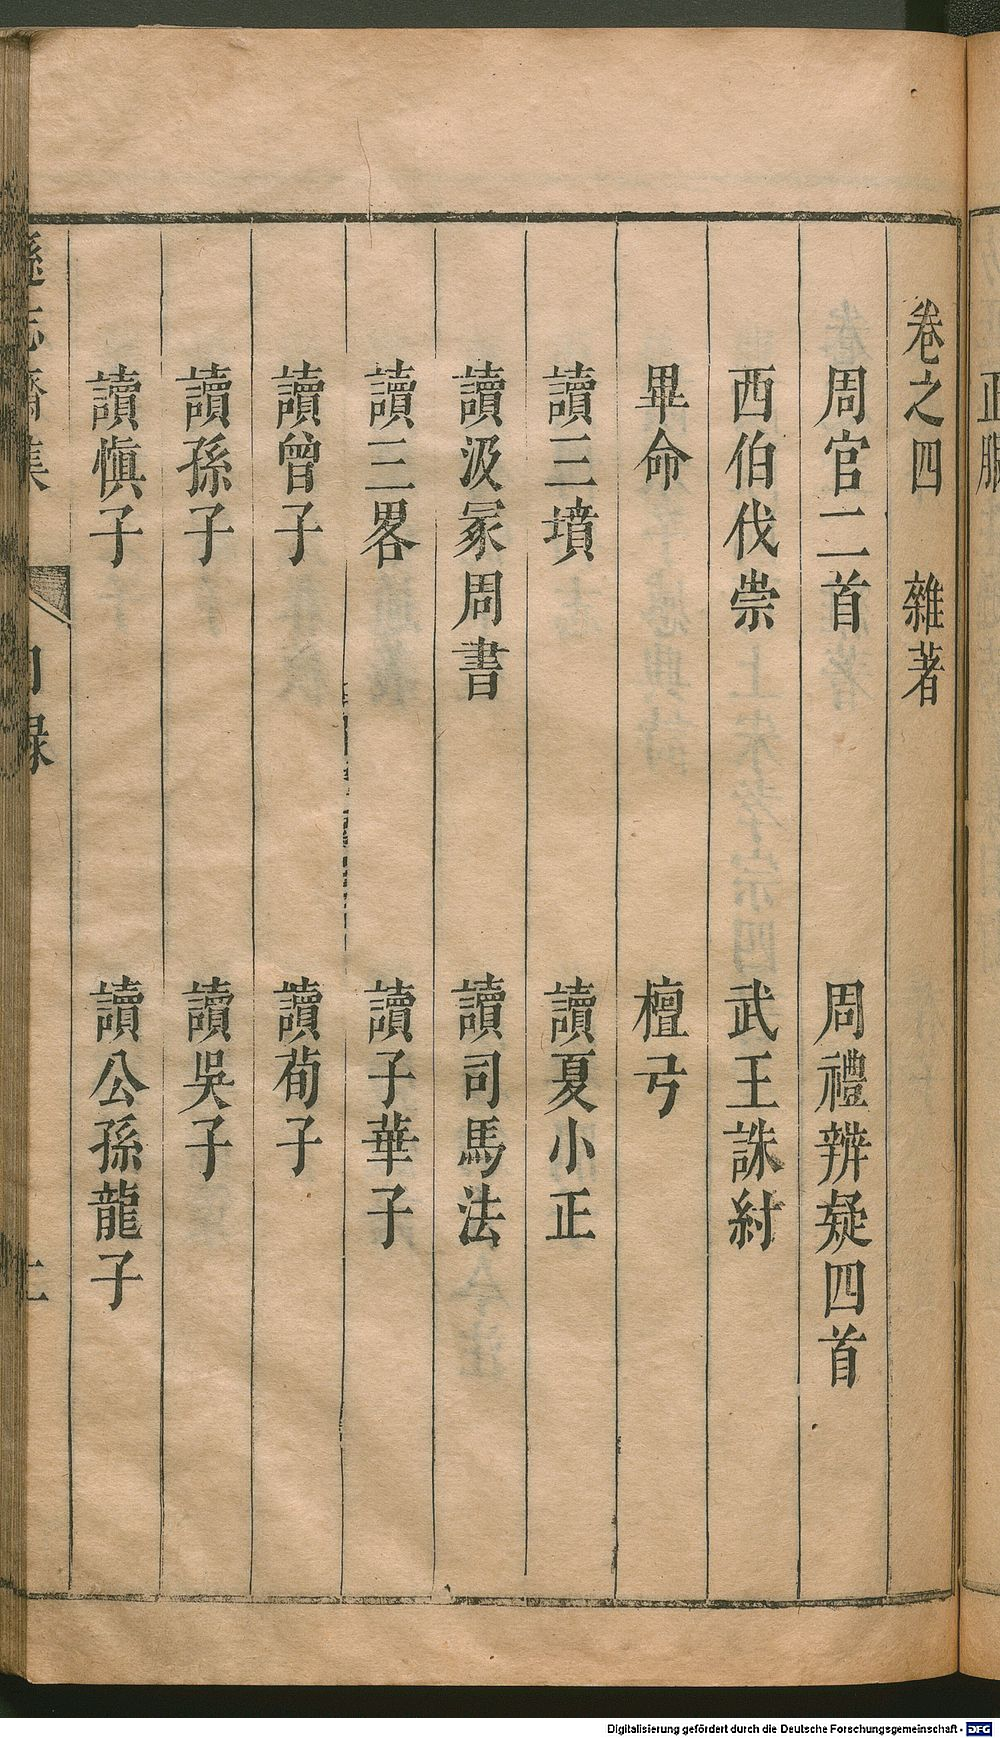 卷之四　雜著
周官二首　周禮辨疑四首
西伯伐崇　武王誅紂
畢命　檀弓
讀三墳　讀夏小正
讀汲冡周書　讀司馬法
讀三畧　讀子華子
讀曾子　讀荀子
讀孫子　讀吳子
讀愼子　讀公孫龍子
遜志齋集　目錄
正服
Digitalisierung gefördert durch die Deutsche Forschungsgemeinschaft - DFG